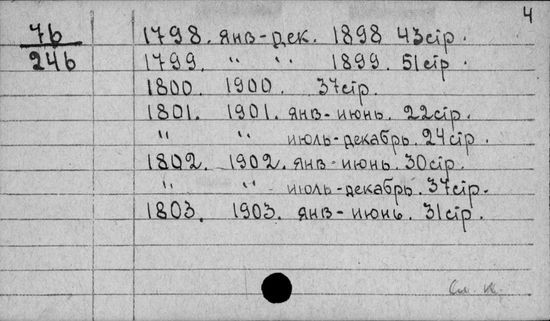 4
7б
24б
1798. янв-дек. 1898 43стр.
1799. " " 1899. 51стр.
1800. 1900. 37стр.
1801. 1901. янв-июнь. 22стр.
" " июль-декабрь. 24стр.
1802. 1902. янв-июнь. 30стр.
" " июль-декабрь. 37стр.
1803. 1903. янв-июнь. 31стр.